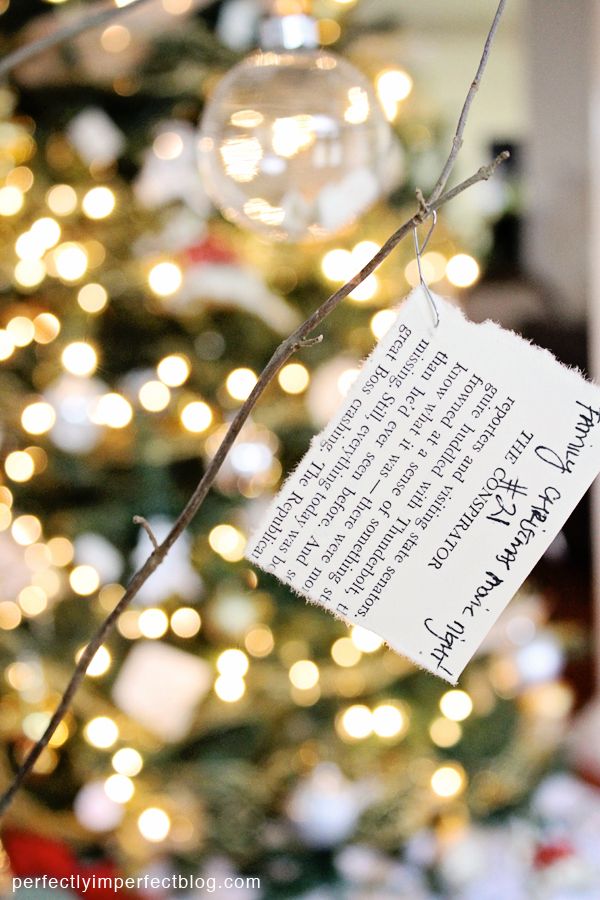 Family CHRISTMAS movie night!
#21
THE CONSPIRATOR
reporters and visiting state senators,
gure huddled with Thunderbolt,
frowned at a sense of something
know what it was—there were
than he'd ever seen before. And
missing. Still, everything today was
great Boss crashing. The Republican
perfectlyimperfectblog.com